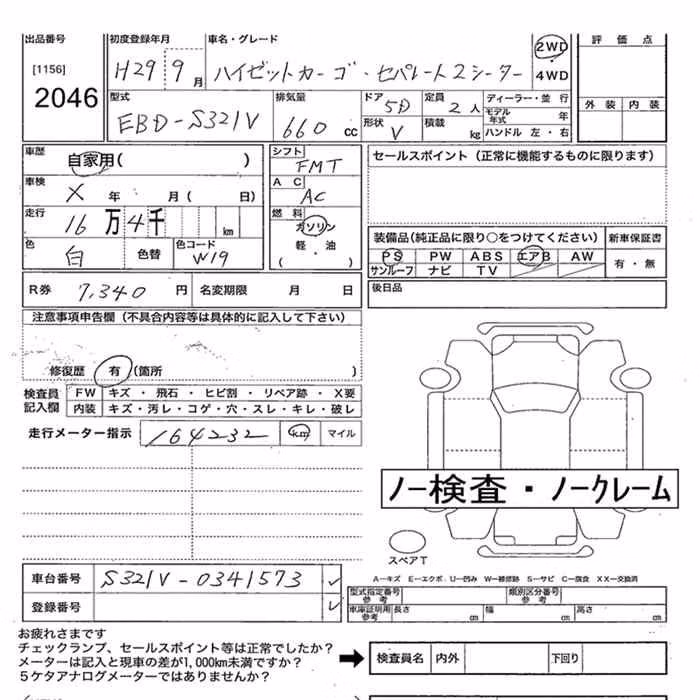 出品番号 初度登録年月 車名・グレード 2WD ・ 4WD 評価点
[1156] 2046 H29 9月 ハイゼットカーゴ・セパレート2シーター 外装 内装
型式 EBD-S321V 排気量 660 cc ドア 5D 定員 2人 ディーラー・並行
形状 V 積載 kg モデル年式 年
ハンドル 左・右
車歴 自家用( ) シフト FMT セールスポイント(正常に機能するものに限ります)
車検 X 年 月( 日) AC AC
走行 16万4千 km 燃料 ガソリン 軽・油 ( )
色 白 色替 色コード W19
装備品(純正品に限り○をつけてください) 新車保証書
PS PW ABS エアB AW 有・無
サンルーフ ナビ TV
R券 7,340円 名変期限 月 日 後日品
注意事項申告欄(不具合内容等は具体的に記入して下さい)
修復歴 有 (箇所 )
検査員記入欄 FW キズ・飛石・ヒビ割・リペア跡・X要
内装 キズ・汚レ・コゲ・穴・スレ・キレ・破レ
走行メーター指示 164232 km マイル
ノー検査・ノークレーム
スペアT
A-キズ E-エクボ U-凹み W-補修跡 S-サビ C-腐食 XX-交換済
車台番号 S321V-0341573 ✓
登録番号 ✓
型式指定番号 参考 類別区分番号 参考
車庫証明用 参考 長さ cm 幅 cm 高さ cm
お疲れさまです
チェックランプ、セールスポイント等は正常でしたか?
メーターは記入と現車の差が1,000km未満ですか?
5ケタアナログメーターではありませんか?
➡ 検査員名 内外 下回り